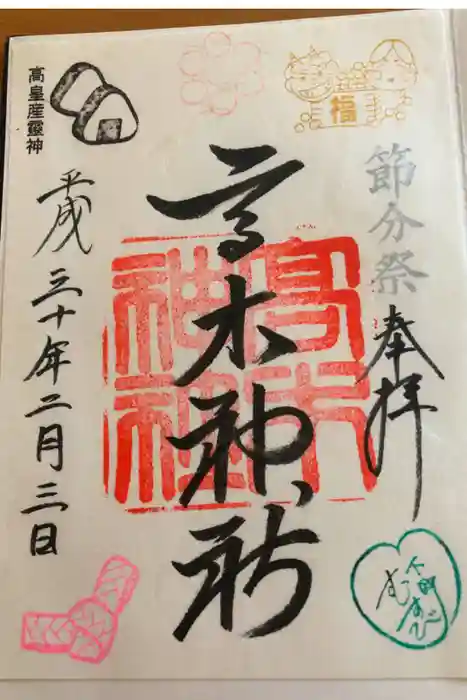 節分祭
奉拝
福
高木神社
高木神社
高皇産靈神
平成三十年二月三日
下町
むすび